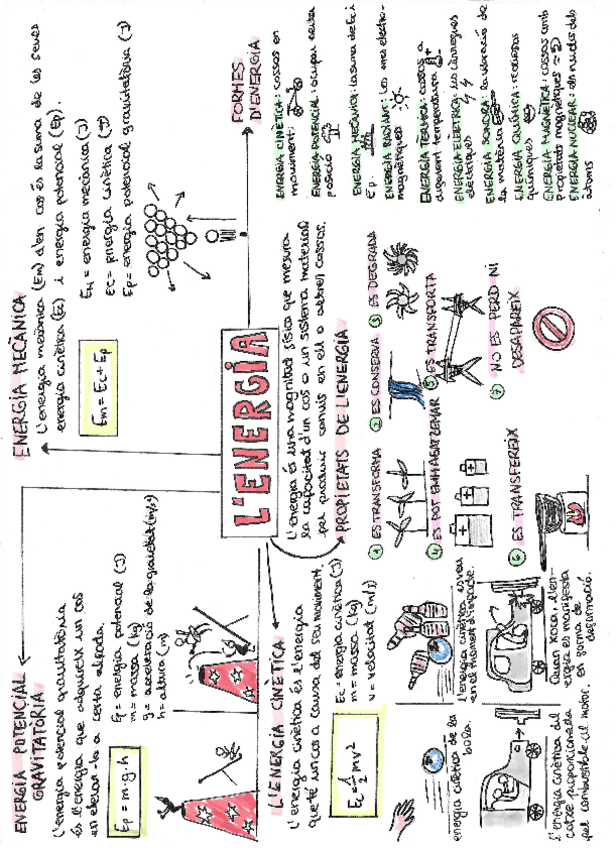 ENERGIA POTENCIAL
GRAVITATÒRIA
L'energia potencial gravitatòria
és l'energia que adquireix un cos
en elevar-lo a certa alçada.
Ep = m·g·h
Ep = energia potencial (J)
m = massa (kg)
g = acceleració de la gravetat (m/s)
h = altura (m)
ENERGIA MECÀNICA
L'energia mecànica (Em) d'en cos és la suma de les seves
energia cinètica (Ec) i energia potencial (Ep).
Em = Ec + Ep
Em = energia mecànica (J)
Ec = energia cinètica (J)
Ep = energia potencial gravitatòria (J)
FORMES
D'ENERGIA
ENERGIA CINÈTICA: cossos en
moviment.
ENERGIA POTENCIAL: ocupar certa
posició
ENERGIA MECÀNICA: la suma de Ec i
Ep.
ENERGIA RADIANT: les ones electro-
magnètiques
ENERGIA TÈRMICA: cossos a
diferent temperatura
ENERGIA ELÈCTRICA: les càrregues
elèctriques
ENERGIA SONORA: la vibració de
la matèria
ENERGIA QUÍMICA: reaccions
químiques
ENERGIA MAGNÈTICA: cossos amb
propietats magnètiques
ENERGIA NUCLEAR: els nuclis dels
àtoms
L'ENERGIA
L'energia és una magnitud física que mesura
la capacitat d'un cos o un sistema material
per produir canvis en ell o altres cossos.
PROPIETATS DE L'ENERGIA
1 ES TRANSFORMA
2 ES CONSERVA
3 ES DEGRADA
4 ES POT EMMAGATZEMAR
5 ES TRANSPORTA
6 ES TRANSFEREIX
7 NO ES PERD NI
DESAPAREIX
L'ENERGIA CINÈTICA
L'energia cinètica és l'energia
que té un cos a causa del seu moviment.
Ec = 1/2 mv²
Ec = energia cinètica (J)
m = massa (kg)
v = velocitat (m/s)
energia cinètica de la
bola.
L'energia cinètica
en el moment d'impacte.
L'energia cinètica del
cotxe proporcionada
pel combustible i el motor.
Quan xoca, l'en-
ergia es manifesta
en forma de
deformació.